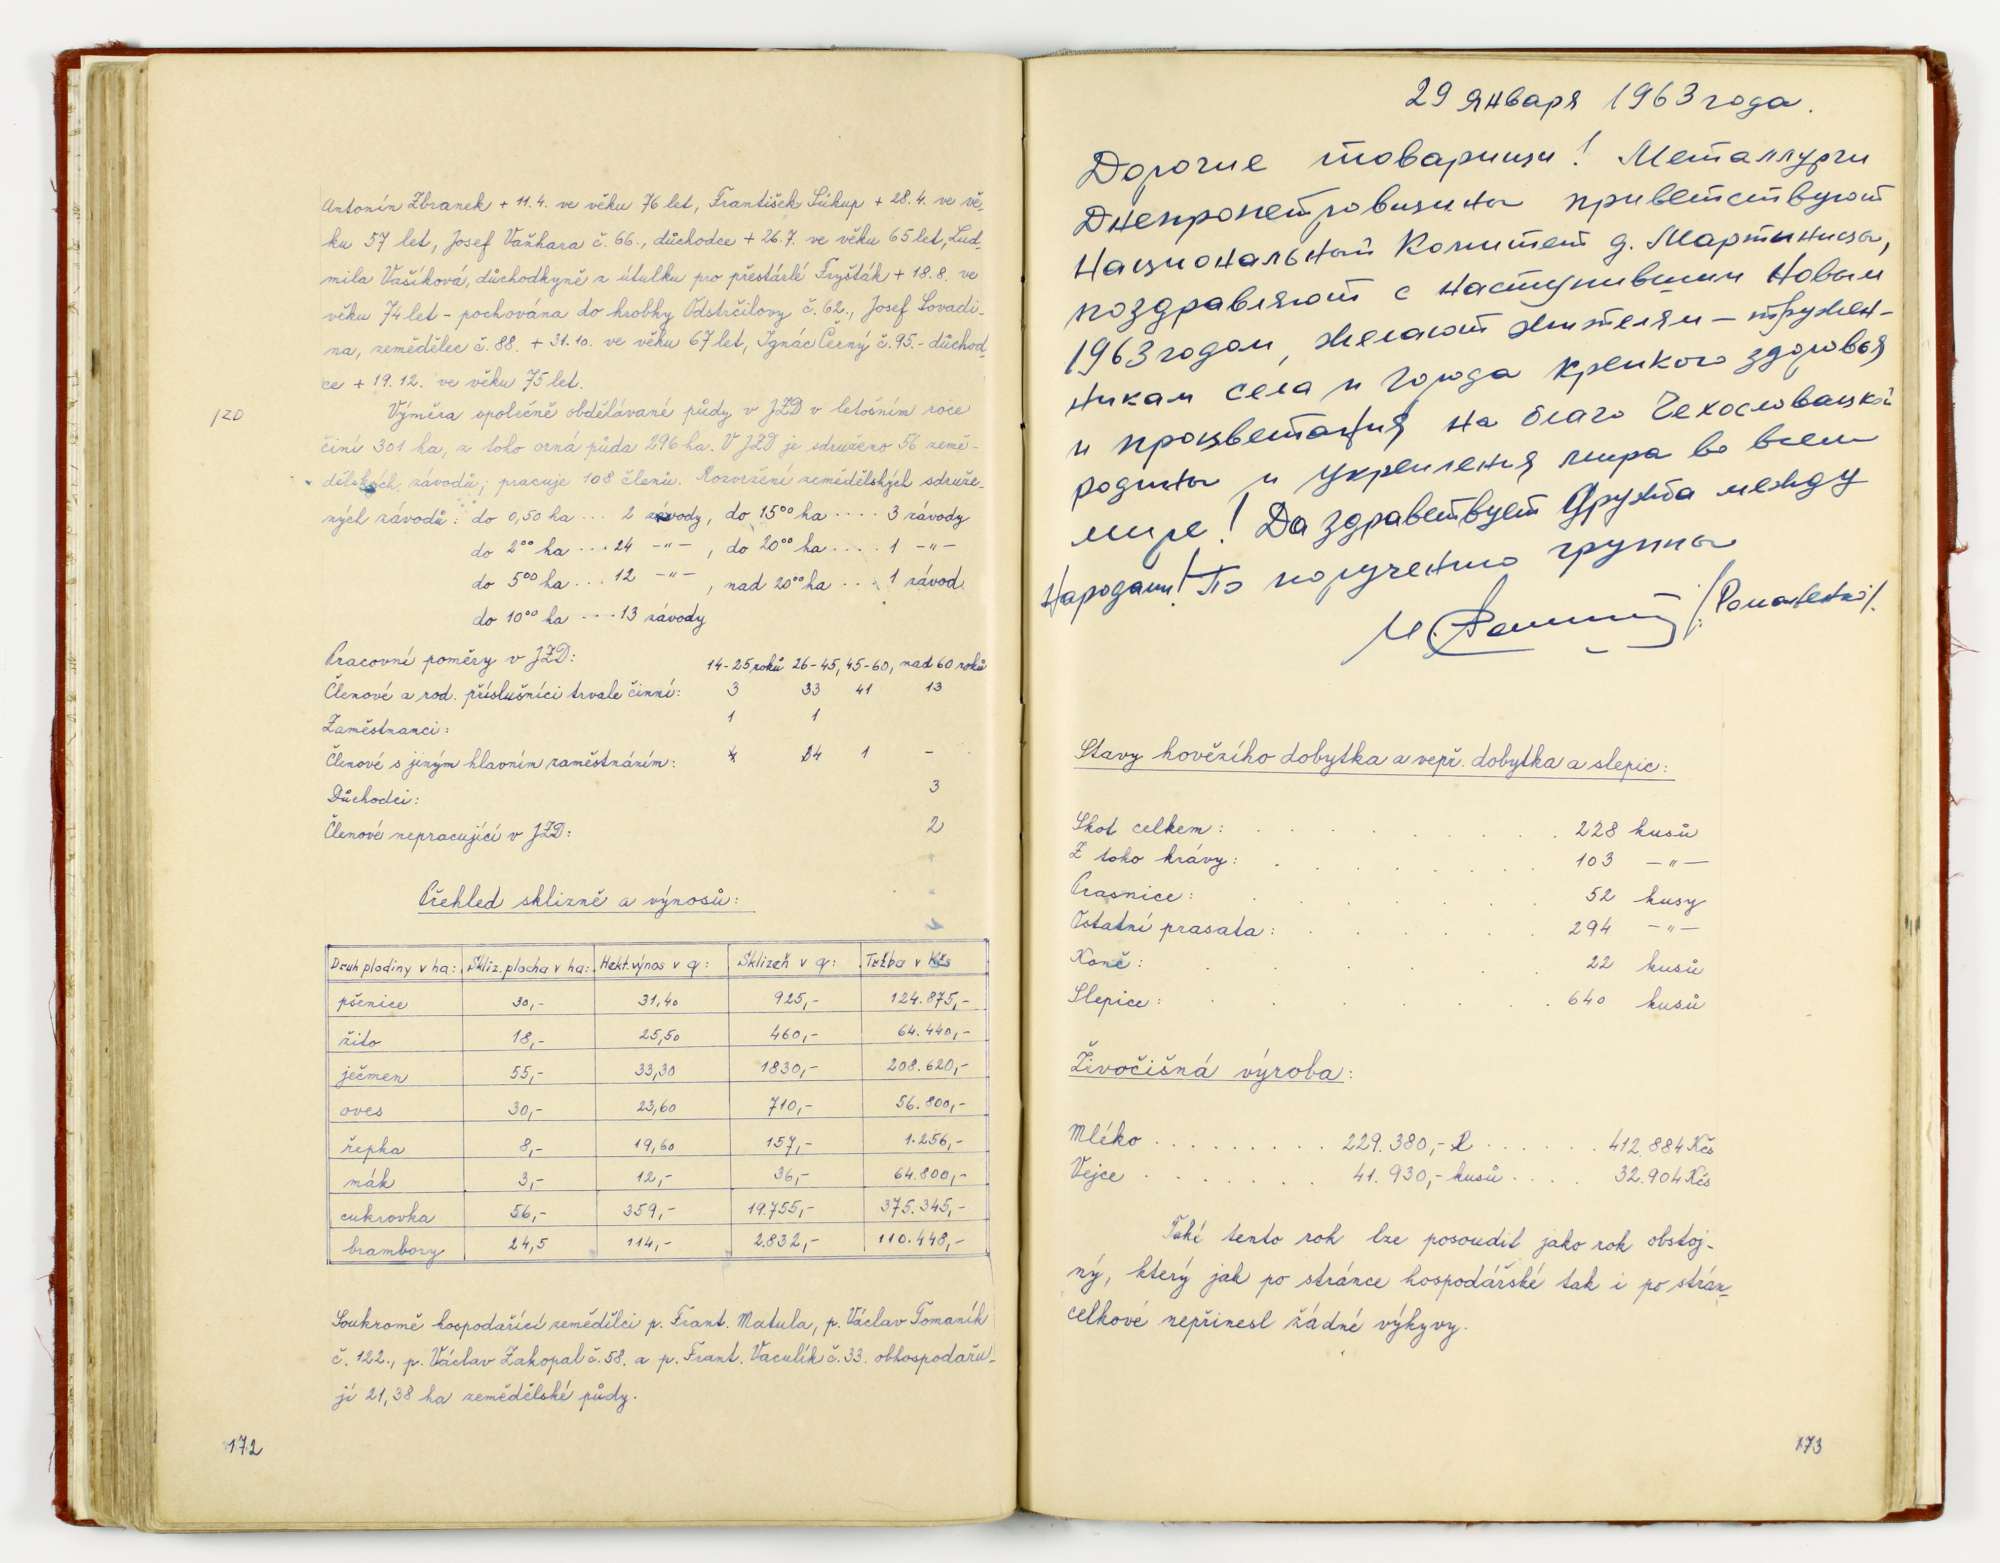 Antonín Zbranek + 11.4. ve věku 76 let, František Súkup + 28.4. ve vě-
ku 57 let, Josef Vaňhara č. 66., důchodce + 26.7. ve věku 65 let, Lud-
mila Vašíková, důchodkyně z útulku pro přestárlé Fryšták + 18.8. ve
věku 74 let - pochována do hrobky Odstrčilovy č. 62., Josef Lovadi-
na, zemědělec č. 88. + 31.10. ve věku 67 let, Ignác Černý č. 95. - důchod-
ce + 19.12. ve věku 75 let.
JZD
Výměra společně obdělávané půdy v JZD v letošním roce
činí 301 ha, z toho orná půda 296 ha. V JZD je sdruženo 56 země-
dělských závodů; pracuje 108 členů. Rozvržení zemědělských sdruže-
ných závodů: do 0,50 ha ... 2 závody, do 15⁰⁰ ha .... 3 závody
do 2⁰⁰ ha ... 24 -"- , do 20⁰⁰ ha .... 1 -"-
do 5⁰⁰ ha ... 12 -"- , nad 20⁰⁰ ha ... 1 závod
do 10⁰⁰ ha .... 13 závody
Pracovní poměry v JZD: 14-25 roků 26-45, 45-60, nad 60 roků
Členové a rod. příslušníci trvale činní: 3 33 41 13
Zaměstnanci: 1 1
Členové s jiným hlavním zaměstnáním: 4 24 1 -
Důchodci: 3
Členové nepracující v JZD: 2
Přehled sklizně a výnosů:
Druh plodiny v ha: Skliz. plocha v ha: Hekt. výnos v q: Sklizeň v q: Tržba v Kčs
pšenice 30,- 31,40 925,- 124.875,-
žito 18,- 25,50 460,- 64.440,-
ječmen 55,- 33,30 1830,- 208.620,-
oves 30,- 23,60 710,- 56.800,-
řepka 8,- 19,60 157,- 1.256,-
mák 3,- 12,- 36,- 64.800,-
cukrovka 56,- 359,- 19.755,- 375.345,-
brambory 24,5 114,- 2.832,- 110.448,-
Soukromě hospodařící zemědělci p. Frant. Matula, p. Václav Tomaník
č. 122., p. Václav Zakopal č. 58. a p. Frant. Vaculík č. 33. obhospodařu-
jí 21,38 ha zemědělské půdy.
172
29 января 1963 года.
Дорогие товарищи! Металлурги
Днепропетровщины приветствуют
Национальный Комитет д. Мартинице,
поздравляют с наступившим Новым
1963 годом, желают жителям - тружен-
никам села и города крепкого здоровья
и процветания на благо Чехословацкой
родины и укрепления мира во всем
мире! Да здравствует Дружба между
Народами! По поручению группы
И.
Stavy hovězího dobytka a vepř. dobytka a slepic:
Skot celkem: . . . . . . . . . . 228 kusů
Z toho krávy: . . . . . . . . 103 -"-
Prasnice: . . . . . . . . 52 kusy
Ostatní prasata: . . . . . . . 294 -"-
Koně: . . . . . . . . 22 kusů
Slepice: . . . . . . . . 640 kusů
Živočišná výroba:
Mléko . . . . . . . . . 229.380,- l . . . . . . 412.884 Kčs
Vejce . . . . . . . . 41.930,- kusů . . . . 32.904 Kčs
Také tento rok lze posoudit jako rok obstoj-
ný, který jak po stránce hospodářské tak i po strán-
celkové nepřinesl žádné výkyvy.
173